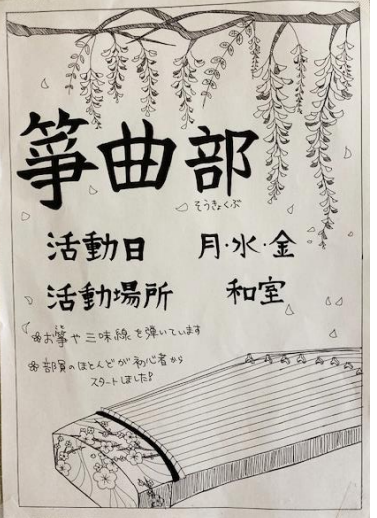 箏曲部
そうきょくぶ
活動日 月・水・金
活動場所 和室
✽お箏や三味線を弾いています
✽部員のほとんどが初心者から
スタートしました!